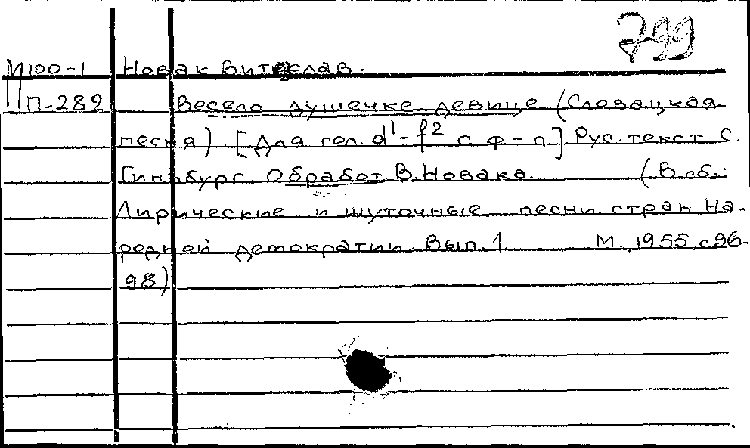 799
М100-1 Новак Витеслав.
П-289 Весело душечке-девице (Словацкая
песня) [Для гол. d¹-f² с ф-п.] Рус. текст С.
Гинзбург. Обработ В. Новака. (В сб.:
Лирические и шуточные песни стран На-
родной демократии. Вып. 1 М., 1955 с 96-
98)